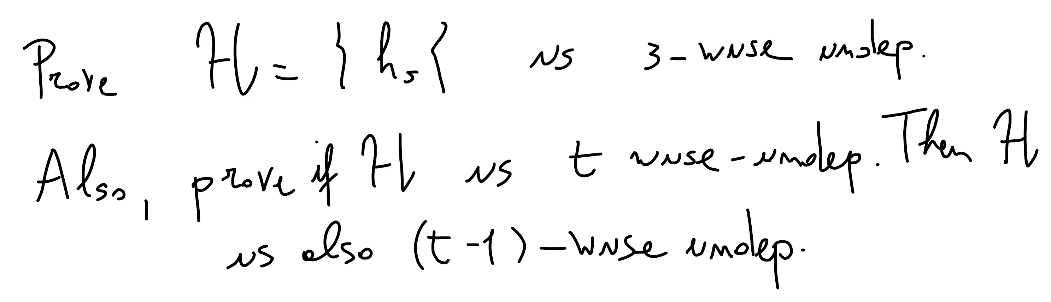 Prove H = { h_s } is 3-wise indep.
Also, prove if H is t wise-indep. Then H
is also (t-1)-wise indep.